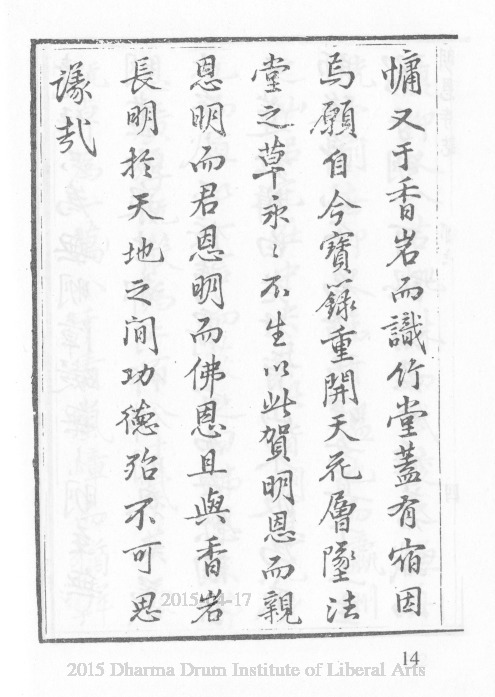 慵又于香岩而識竹堂蓋有宿因
焉願自今寶籙重開天花層墜法
堂之草永〻不生以此賀明恩而親
恩明而君恩明而佛恩且與香岩
長明於天地之間功德殆不可思
議哉
14
2015-04-17
2015 Dharma Drum Institute of Liberal Arts